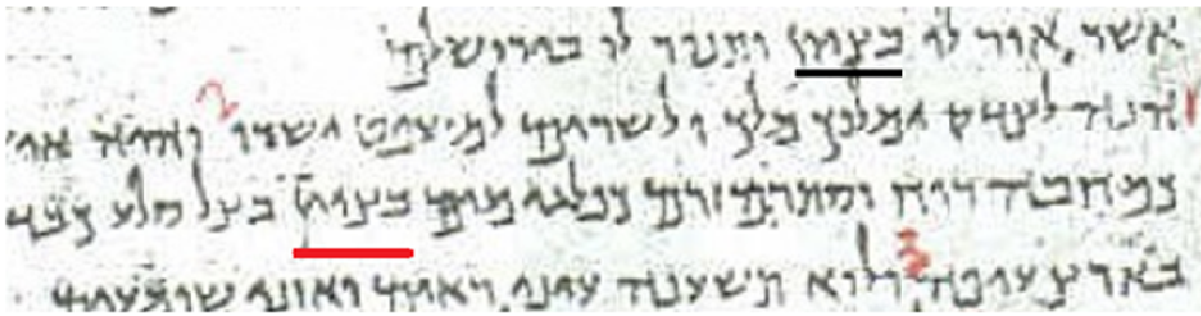 אשר אור לו בציון ותנור לו בירושלים
1 הנה לצדק ימלוך מלך ולשרים למשפט ישרו 2 והיה
כמחבה רוח וסתרם זרם כפלגי מים בציון בצל סלע כבד
בארץ עיפה 3 ולוא תשענה עיני רואים ואוזני שומעים